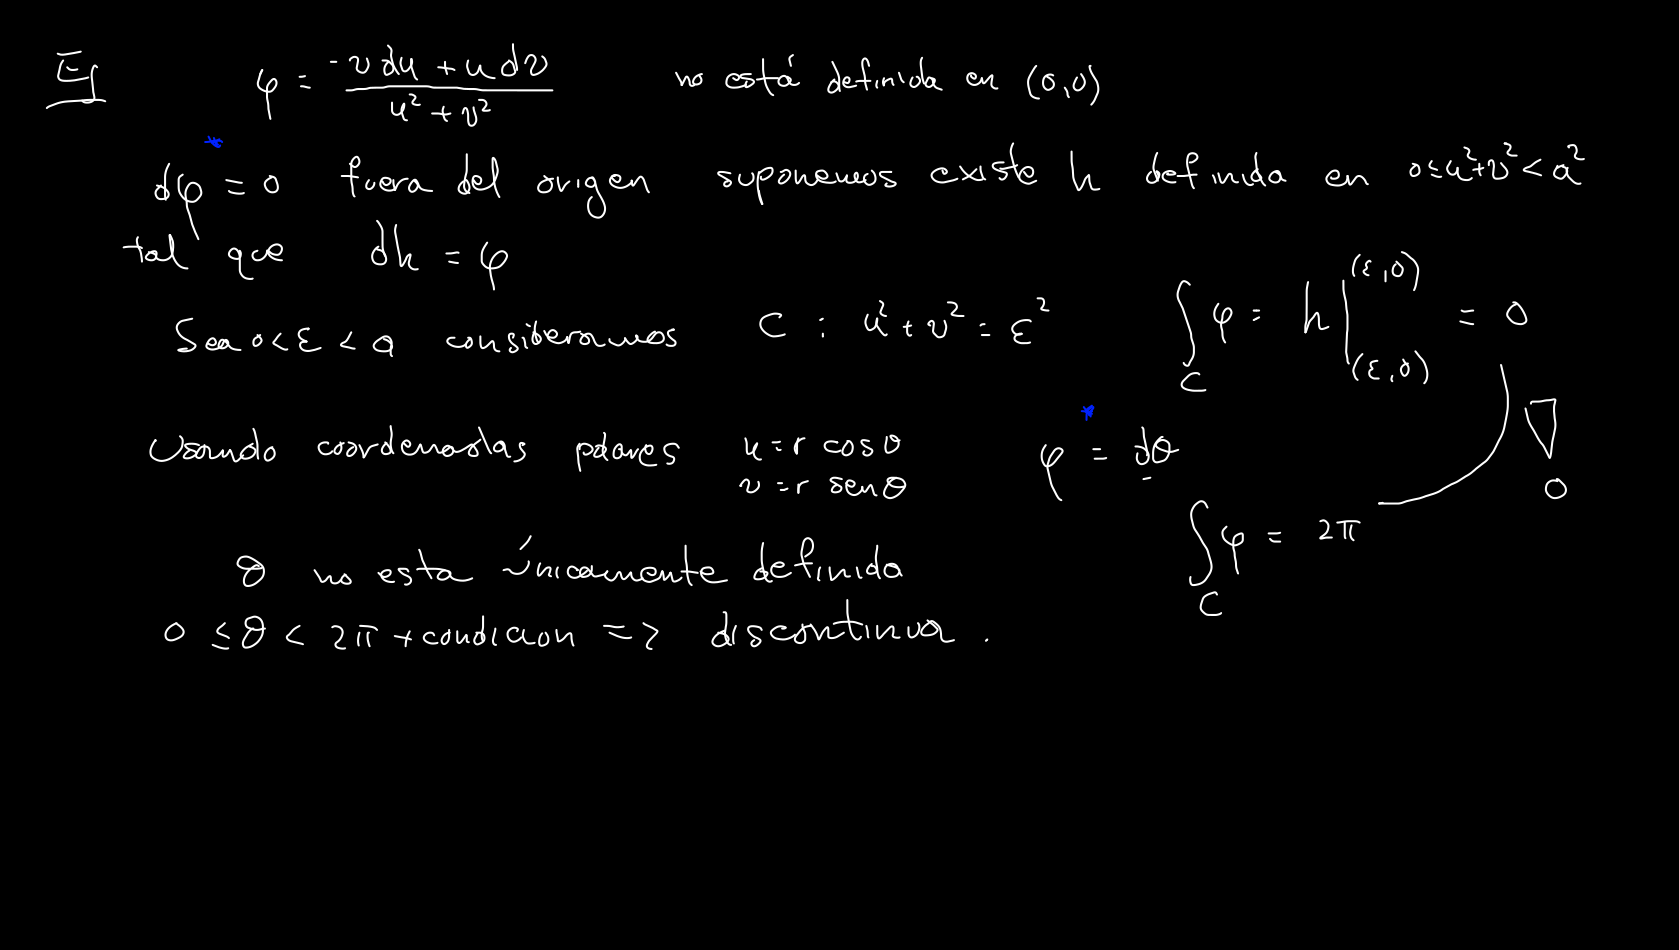 Ej φ = (-v du + u dv) / (u² + v²) no está definida en (0,0)
dφ * = 0 fuera del origen suponemos existe h definida en 0≤u²+v²<a²
tal que dh = φ
Sea 0<ε<a consideramos C : u²+v² = ε² ∫_C φ = h |_(ε,0)^(ε,0) = 0
Usando coordenadas polares u=r cosθ φ * = dθ
v=r senθ
∫_C φ = 2π
θ no esta únicamente definida
0 ≤ θ < 2π + condicion => discontinua.